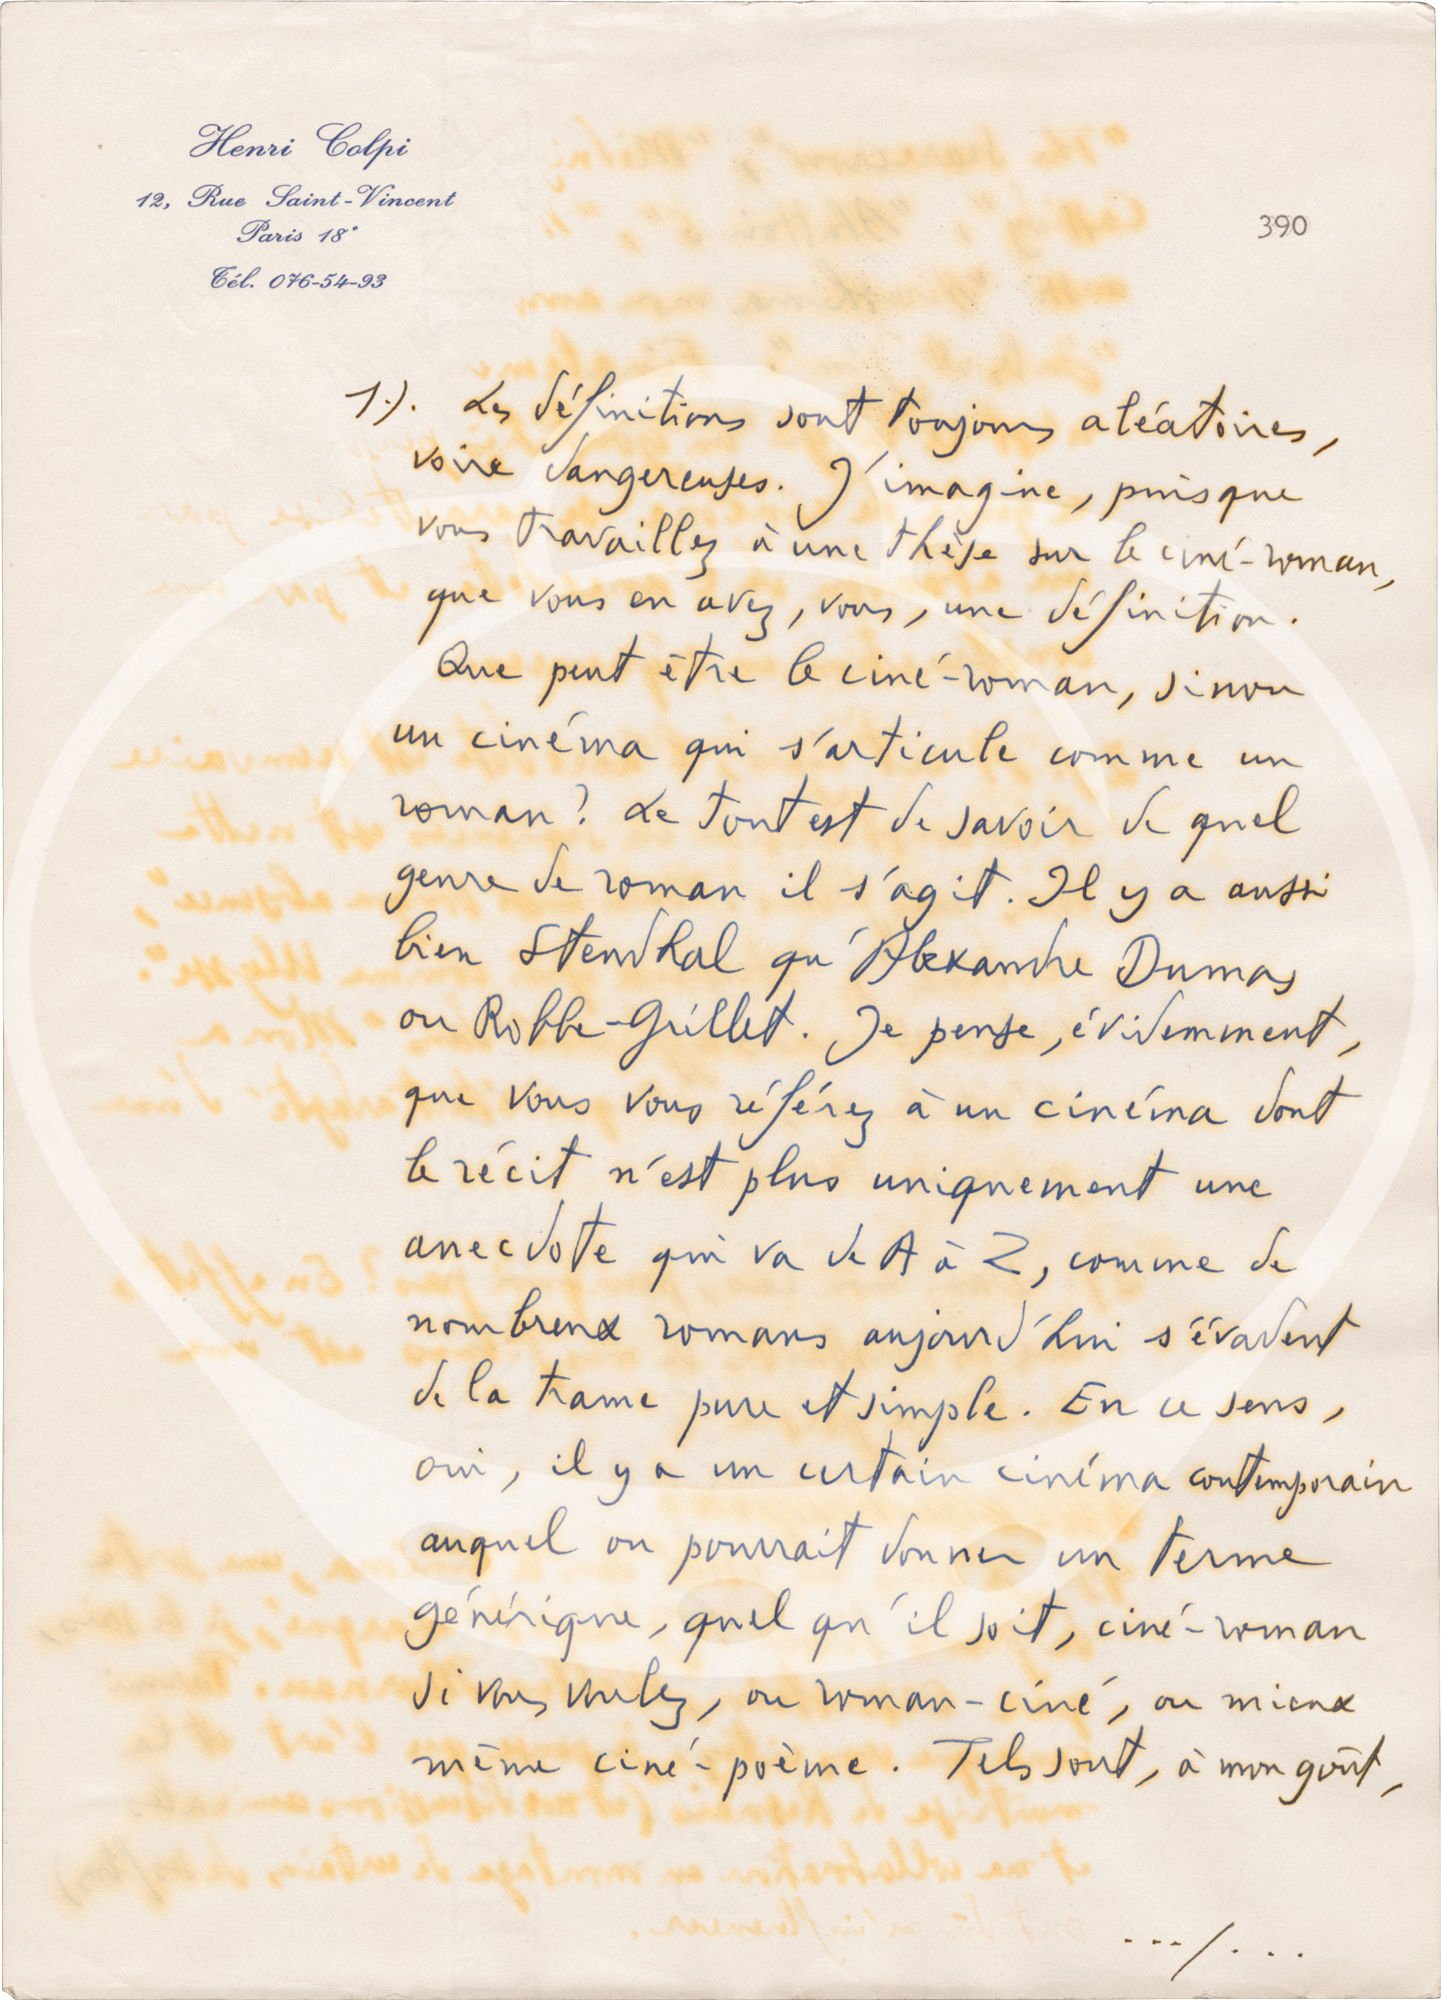 Henri Colpi
12, Rue Saint-Vincent
Paris 18e
Tél. 076-54-93
390
1.). Les définitions sont toujours aléatoires,
voire dangereuses. J'imagine, puisque
vous travaillez à une thèse sur le ciné-roman,
que vous en avez, vous, une définition.
Que peut être le ciné-roman, sinon
un cinéma qui s'articule comme un
roman? Le tout est de savoir de quel
genre de roman il s'agit. Il y a aussi
bien Stendhal qu'Alexandre Dumas
ou Robbe-Grillet. Je pense, évidemment,
que vous vous référez à un cinéma dont
le récit n'est plus uniquement une
anecdote qui va de A à Z, comme de
nombreux romans aujourd'hui s'évadent
de la trame pure et simple. En ce sens,
oui, il y a un certain cinéma contemporain
auquel on pourrait donner un terme
générique, quel qu'il soit, ciné-roman
si vous voulez, ou roman-ciné, ou mieux
même ciné-poème. Tels sont, à mon goût,
.../...